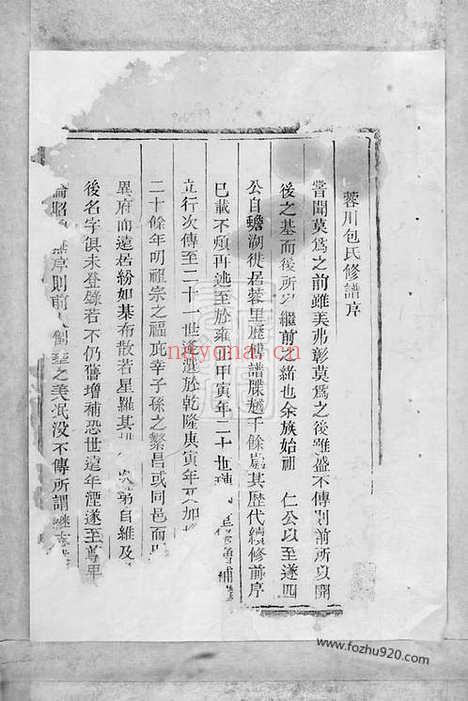 蓉川包氏修譜序
嘗聞莫為之前雖美弗彰莫為之後雖盛不傳則前所以開
後之基而後所以繼前之緒也余族始祖 仁公以至遂四
公自蟾湖徙居蓉里歷傳譜牒越千餘歲其歷代續修前序
已載不煩再述至於雍正甲寅年二十世
立行次傳至二十一世逢選於乾隆庚寅年 加
二十餘年明祖宗之福庇幸子孫之繁昌或同邑而
異府而遠居紛如基布散若星羅其 次第自維及
後名字俱未登錄若不仍舊增補恐世遠年湮遂至尊卑
論昭 無序則前人 之美泯沒不傳所謂
nayona.cn
www.fozhu920.com